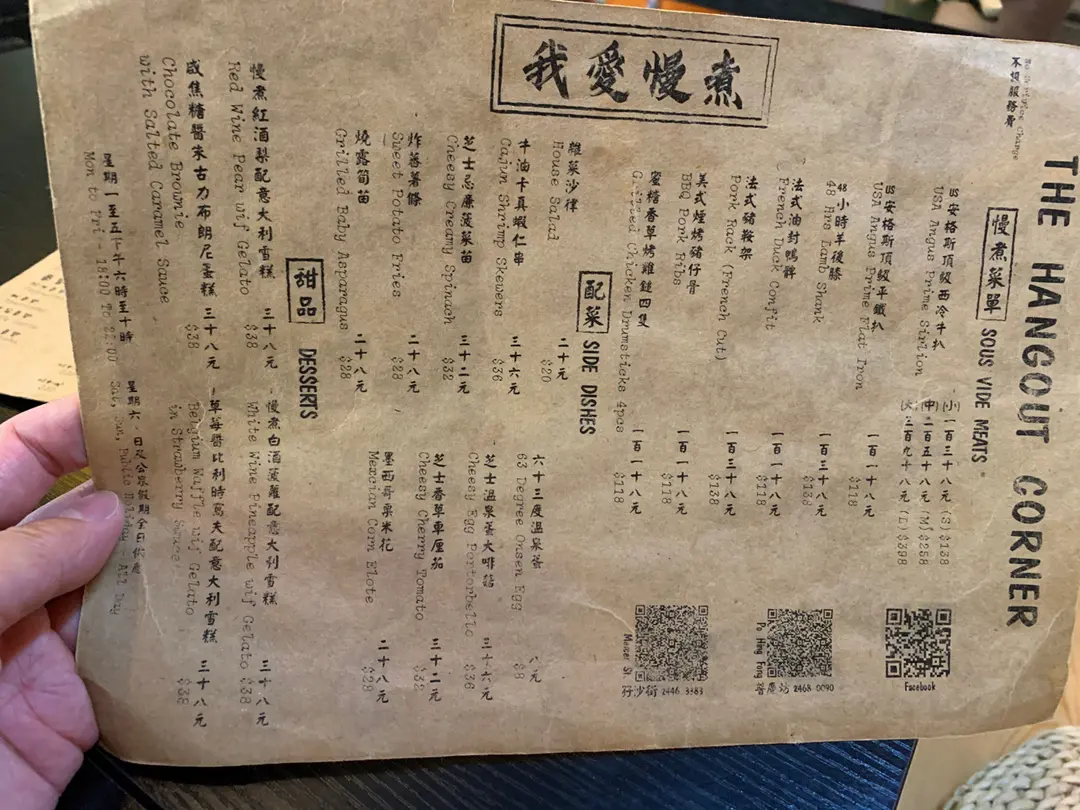 THE HANGOUT CORNER
不設服務費
慢煮菜單 SOUS VIDE MEATS
US安格斯頂級西冷牛扒 (小) 一百三十八元 (S) $138
USA Angus Prime Sirlion (中) 二百五十八元 (M) $258
(大) 三百九十八元 (L) $398
US安格斯頂級平鐵扒 一百一十八元
USA Angus Prime Flat Iron $118
48小時羊後膝 一百三十八元
48 Hrs Lamb Shank $138
法式油封鴨髀 一百一十八元
French Duck Confit $118
法式豬鞍架 一百三十八元
Pork Rack (French Cut) $138
美式煙烤豬仔骨 一百一十八元
BBQ Pork Ribs $118
蜜糖香草烤雞鎚四隻 一百一十八元
Grilled Chicken Drumsticks 4pcs $118
Facebook
Po Hing Fong 普慶坊 2468 0090
Mercer St. 孖沙街 2446 3383
我愛慢煮
配菜 SIDE DISHES
雜菜沙律 二十元
House Salad $20
牛油卡真蝦仁串 三十六元
Cajun Shrimp Skewers $36
芝士忌廉菠菜苗 三十二元
Cheesy Creamy Spinach $32
炸蕃薯條 二十八元
Sweet Potato Fries $28
燒露筍苗 二十八元
Grilled Baby Asparagus $28
六十三度溫泉蛋 八元
63 Degree Onsen Egg $8
芝士溫泉蛋大啡菇 三十六元
Cheesy Egg Portorbello $36
芝士香草車厘茄 三十二元
Cheesy Cherry Tomato $32
墨西哥粟米花 二十八元
Mexcian Corn Elote $28
甜品 DESSERTS
慢煮紅酒梨配意大利雪糕 三十八元
Red Wine Pear wif Gelato $38
咸焦糖醬朱古力布朗尼蛋糕 三十八元
Chocolate Brownie $38
with Salted Caramel Sauce
慢煮白酒菠蘿配意大利雪糕 三十八元
White Wine Pineapple wif Gelato $38
草莓醬比利時窩夫配意大利雪糕 三十八元
Belgium Waffle wif Gelato $38
in Strawberry Sauce
星期一至五下午六時至十時
Mon to Fri - 18:00 To 22:00
星期六、日及公眾假期全日供應
Sat, Sun, Public Holiday - All Day